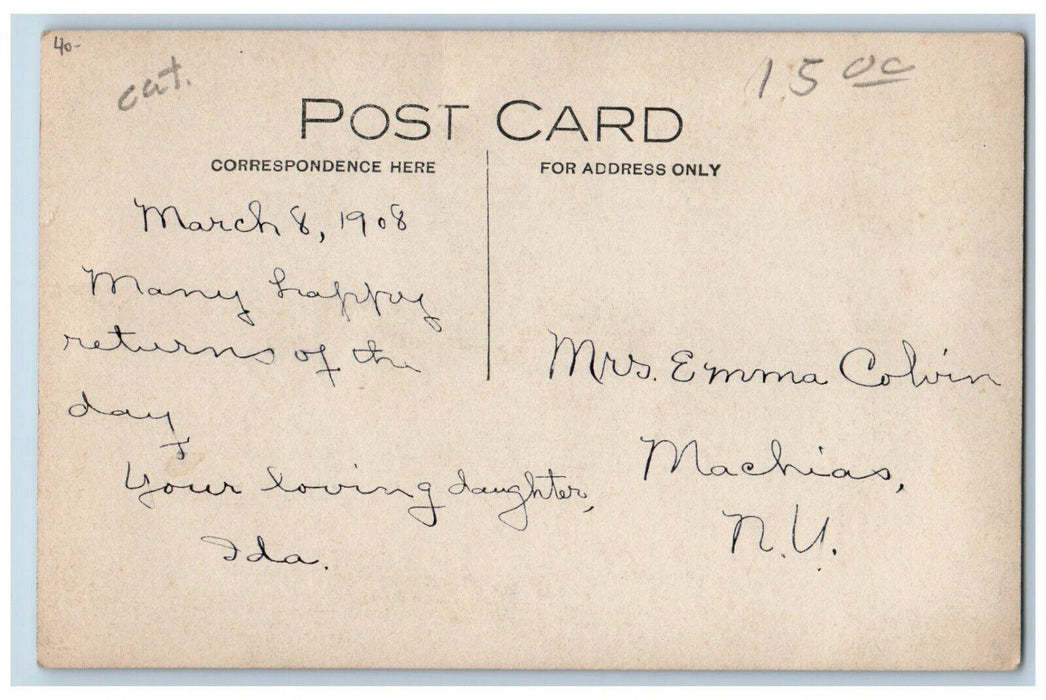 40-
cat.
15 00
POST CARD
CORRESPONDENCE HERE
FOR ADDRESS ONLY
March 8, 1908
Many happy
returns of the
day
Your loving daughter,
Ida.
Mrs. Emma Colvin
Machias,
N.Y.